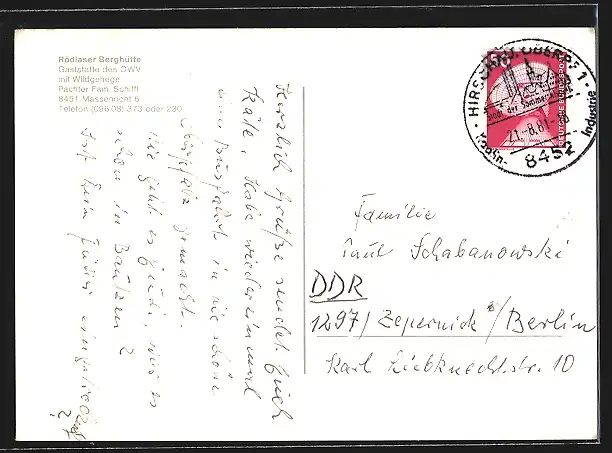 Rödlaser Berghütte
Gaststätte des OWV
mit Wildgehege
Pächter Fam. Schiffl
8451 Massenricht 6
Telefon (096 08) 373 oder 230
Herzlich Grüße sendet Euch
Käte, Habe wieder einmal
eine Busfahrt in die schöne
Oberpfalz gemacht.
Wie geht es Euch, war es
schön in Bautzen?
Ist kein
HIRSCHAU, OBERPF 1
Stadt der
21.-8.81
Kaolin-
Industrie
8452
DEUTSCHE BUNDESPOST
Familie
Paul Schabanowski
DDR
1297/Zepernick/Berlin
Karl Liebknecht.str. 10